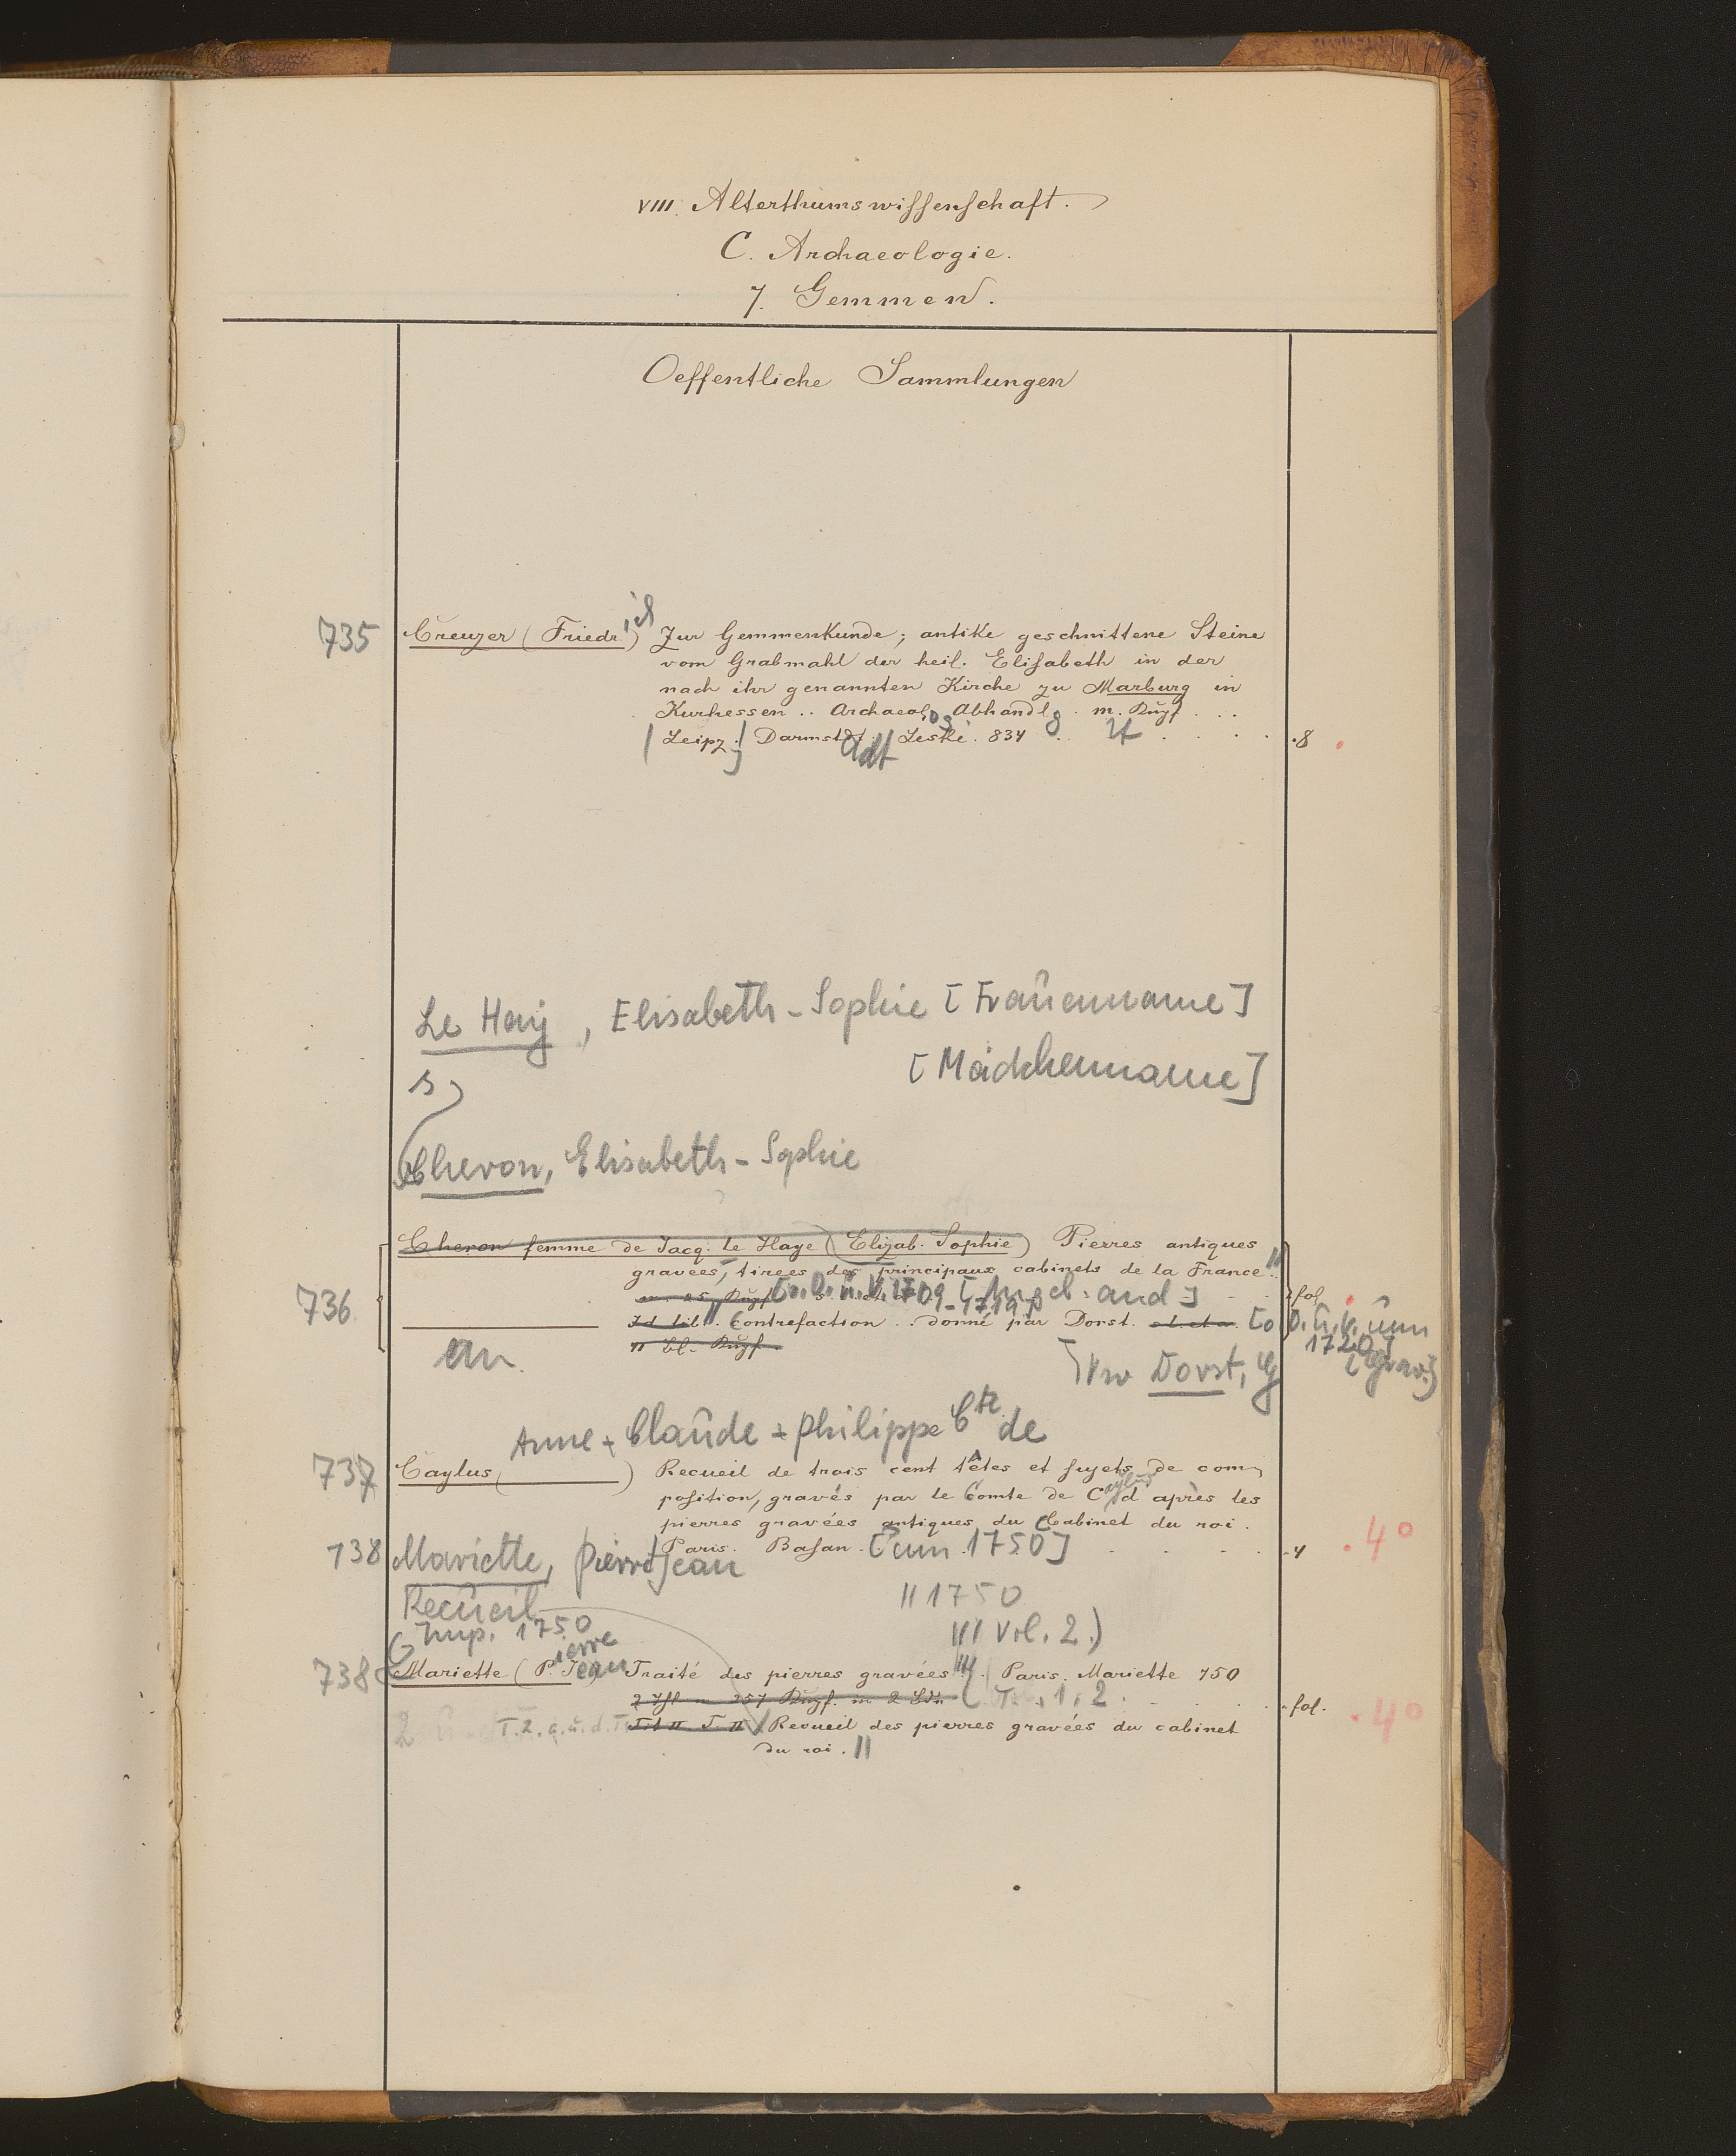 VIII. Alterthumswissenschaft.
C. Archaeologie.
7. Gemmen.
Oeffentliche Sammlungen
735 Creuzer (Friedr.ich) Zur Gemmenkunde; antike geschnittene Steine
vom Grabmahl der heil. Elisabeth in der
nach ihr genannten Kirche zu Marburg in
Kurhessen .. Archaeol. Abhandl. m. Kupf. ..
[Leipz.] Darmstdt. Leske. 834 .8
Le Hay, Elisabeth-Sophie [Frauenname]
[Mädchenname]
s
Cheron, Elisabeth-Sophie
Cheron femme de Jacq. Le Haye (Elizab. Sophie) Pierres antiques
gravées, tirées des principaux cabinets de la France
736 m. 25 Kupf. fol.
Id. lib. Contrefaction .. donné par Dorst. [o. O. u. V. um
1720]
11 bl. Kupf.
an Dorst, G
Anne-Claude-Philippe Cte de
737 Caylus ( ) Recueil de trois cent têtes et sujets de com-
position, gravés par le Comte de Caylus d'après les
pierres gravées antiques du Cabinet du roi.
Paris. Basan. [um 1750] .4 .4°
738 Mariette, Pierre Jean
Recueil || 1750
Imp. 1750 Vol. 2.)
738 Mariette (P.ierre Jean) Traité des pierres gravées. Paris. Mariette 750
2 Thl. m. 257 Kupf. in 2 Bdn. T. 1. 2. fol. .4°
Recueil des pierres gravées du cabinet
du roi. ||